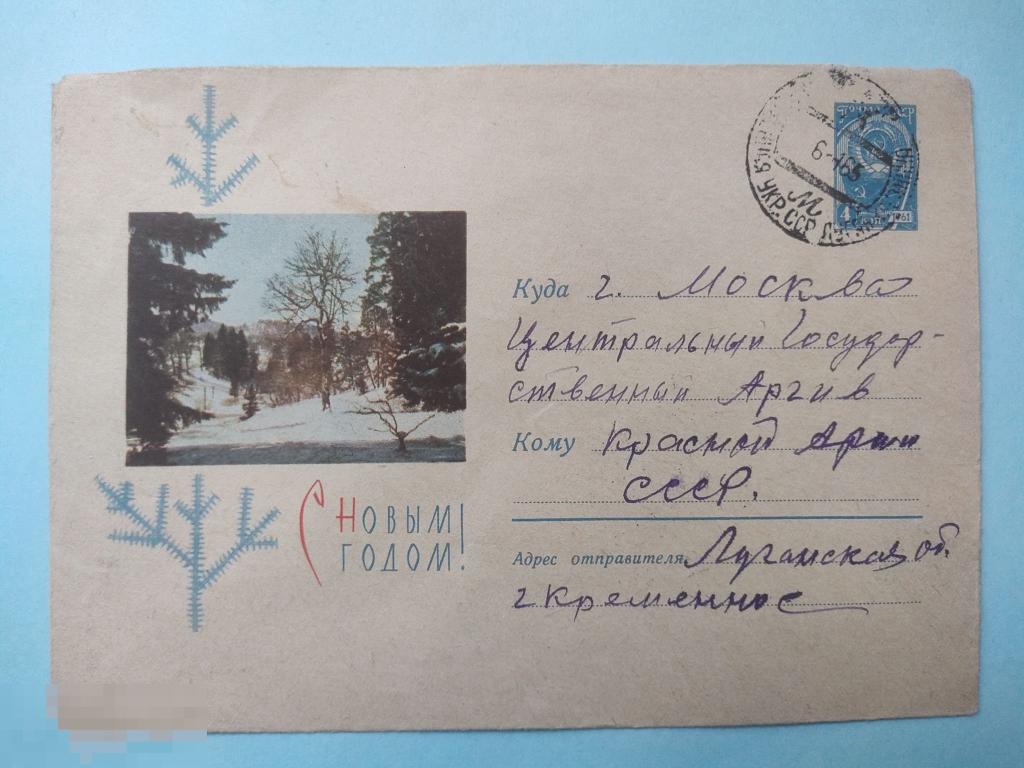 ПОЧТА СССР
6-1 65
УКР. ССР
4
1961
Куда г. Москва
Центральный Государ-
ственный Аргив
Кому Красной Арми
СССР.
С НОВЫМ
ГОДОМ!
Адрес отправителя Луганская об.
г Кременное